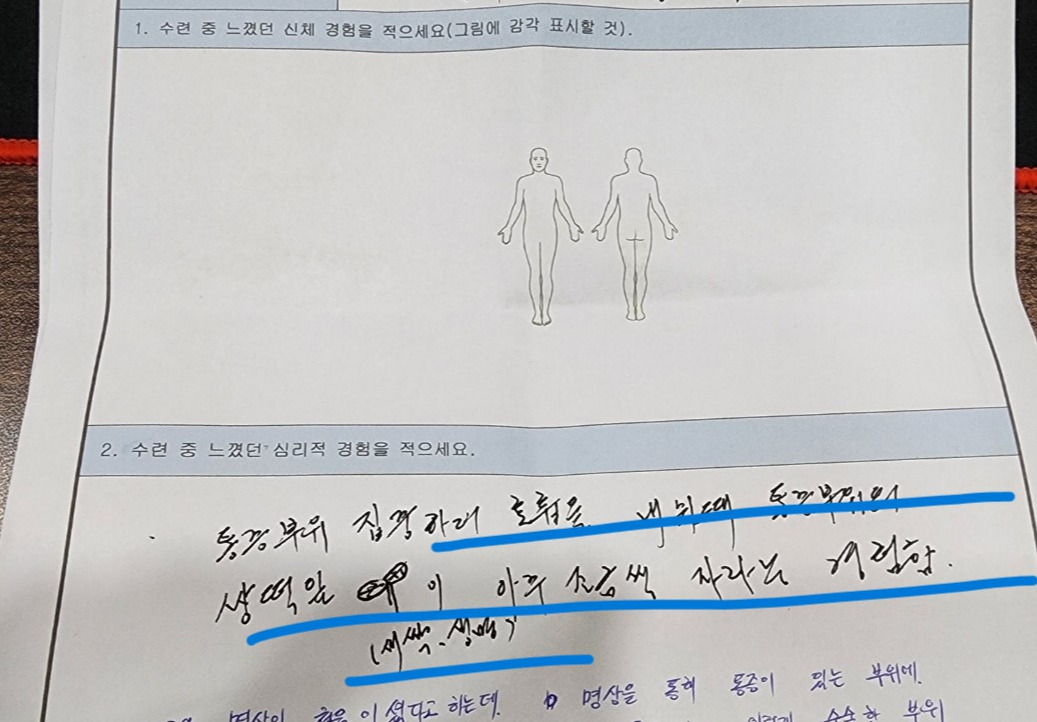 1. 수련 중 느꼈던 신체 경험을 적으세요(그림에 감각 표시할 것).
2. 수련 중 느꼈던 심리적 경험을 적으세요.
통증부위 집중하며 호흡을 내쉴때 통증부위에서
이 아주 조금씩 자라는 경험함.
(새싹, 생명)
명상이 처음이셨다고 하는데. 명상을 통해 통증이 있는 부위에.
부위